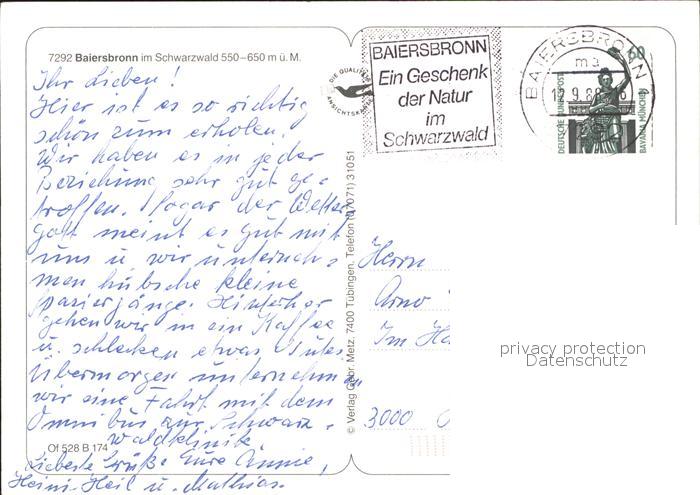 7292 Baiersbronn im Schwarzwald 550–650 m ü. M.
Ihr Lieben!
Hier ist es so richtig
schön zum erholen.
Wir haben es in jeder
Beziehung sehr gut ge-
troffen. Sogar der Wetter
gott meint es gut mit
uns u. wir unterneh-
men hübsche kleine
Spaziergänge. Hinterher
gehen wir in ein Kaffee
u. schlecken etwas Gutes
Übermorgen unternehmen
wir eine Fahrt mit dem
Omnibus zur Schwarz-
waldklinik.
Of 528 B 174
Liebste Grüße Eure Annie,
Heini-Heil u. Mathias.
DIE QUALITÄTS
ANSICHTSKARTE
© Verlag Gebr. Metz, 7400 Tübingen, Telefon (07071) 31051
BAIERSBRONN
Ein Geschenk
der Natur
im
Schwarzwald
BAIERSBRONN 1
ma
9.88
60
DEUTSCHE BUNDESPOST
BAVARIA MÜNCHEN
Herrn
Arno
Im
3000
privacy protection
Datenschutz